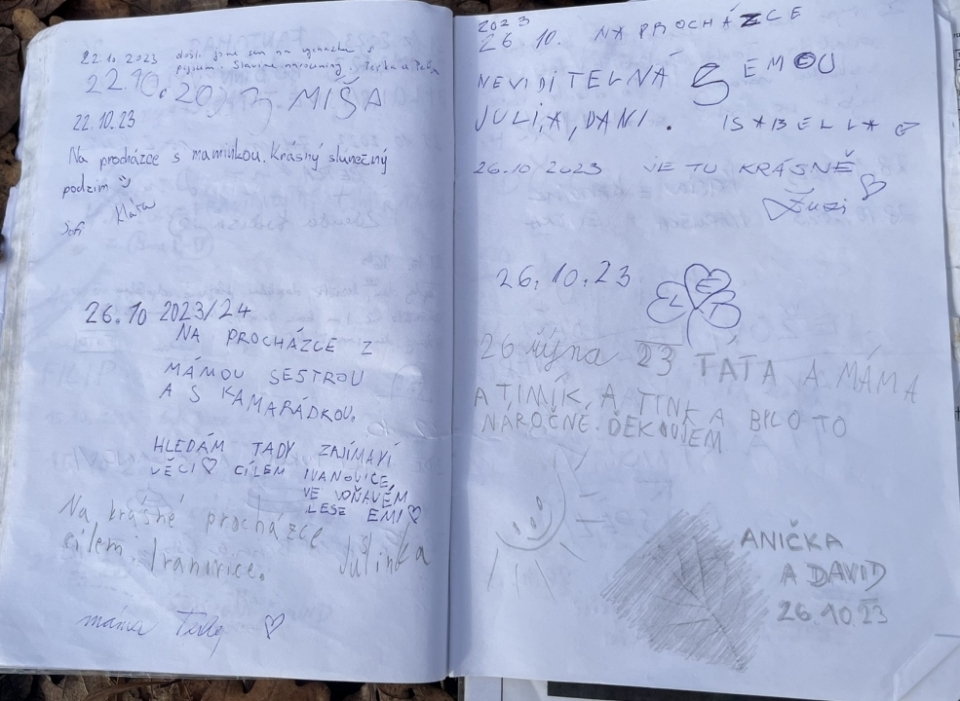 22.10.2023 došli jsme sem na vycházku s
pejskem. Slavíme narozeniny. Terka a Péťa
22.10.2023 MÍŠA
22.10.23
Na procházce s maminkou. Krásný slunečný
podzim
Sofi Klára
26.10 2023/24
NA PROCHÁZCE Z
MÁMOU SESTROU
A S KAMARÁDKOU,
HLEDÁM TADY ZAJÍMAVÍ
VĚCI♡ CÍLEM IVANOVICE,
VE VOŇAVÉM
LESE EMI♡
Na krásné procházce Julinka
cílem Ivanovice.
máma ♡
2023
26.10. NA PROCHÁZCE
NEVIDITELNÁ S EMOU
JULIA, DANI. ISABELLA
26.10/2023 JE TU KRÁSNĚ ♡
Zuzi
26.10.23
26 října 23 TÁTA A MÁMA
A TIMÍK, A TINK A BILO TO
NÁROČNÉ. DĚKUJEM
ANIČKA
A DAVID
26.10.23